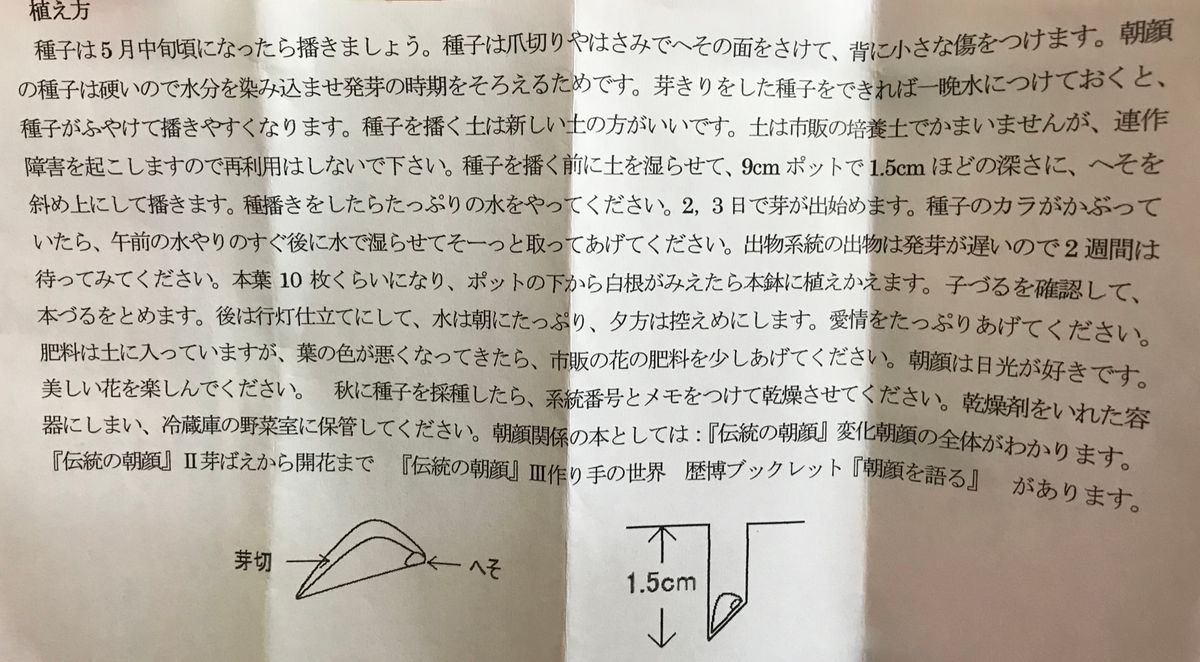 植え方
種子は5月中旬頃になったら播きましょう。種子は爪切りやはさみでへその面をさけて、背に小さな傷をつけます。朝顔
の種子は硬いので水分を染み込ませ発芽の時期をそろえるためです。芽きりをした種子をできれば一晩水につけておくと、
種子がふやけて播きやすくなります。種子を播く土は新しい土の方がいいです。土は市販の培養土でかまいませんが、連作
障害を起こしますので再利用はしないで下さい。種子を播く前に土を湿らせて、9cm ポットで 1.5cm ほどの深さに、へそを
斜め上にして播きます。種播きをしたらたっぷりの水をやってください。2, 3日で芽が出始めます。種子のカラがかぶって
いたら、午前の水やりのすぐ後に水で湿らせてそーっと取ってあげてください。出物系統の出物は発芽が遅いので2週間は
待ってみてください。本葉 10 枚くらいになり、ポットの下から白根がみえたら本鉢に植えかえます。子づるを確認して、
本づるをとめます。後は行灯仕立てにして、水は朝にたっぷり、夕方は控えめにします。愛情をたっぷりあげてください。
肥料は土に入っていますが、葉の色が悪くなってきたら、市販の花の肥料を少しあげてください。朝顔は日光が好きです。
美しい花を楽しんでください。　秋に種子を採種したら、系統番号とメモをつけて乾燥させてください。乾燥剤をいれた容
器にしまい、冷蔵庫の野菜室に保管してください。朝顔関係の本としては：『伝統の朝顔』変化朝顔の全体がわかります。
『伝統の朝顔』Ⅱ芽ばえから開花まで　『伝統の朝顔』Ⅲ作り手の世界　歴博ブックレット『朝顔を語る』　があります。
芽切
へそ
1.5cm